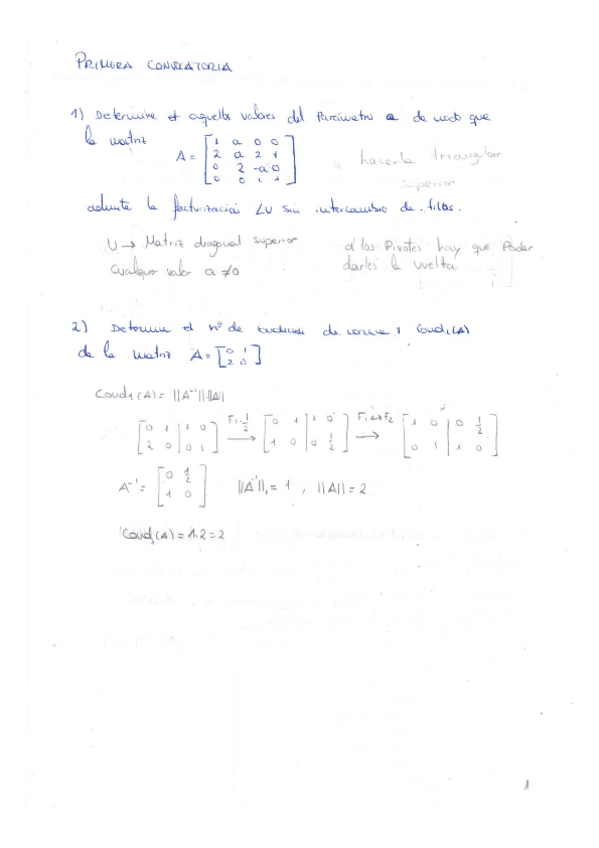 PRIMERA CONVOCATORIA
1) Determine et aquellos valores del Parámetro a de modo que
la matriz
A = [1 a 0 0
2 a 2 1
0 2 -a 0
0 0 1 1]
hacerla triangular
superior
admite la factorización LU sin intercambio de filas.
U → Matriz diagonal superior
Cualquier valor a ≠ 0
a los Pivotes hay que Poder
darles la vuelta
2) Determine el nº de condición de norma 1 Cond₁(A)
de la matriz A = [0 1
2 0]
Cond₁(A) = ||A⁻¹||·||A||
[0 1 | 1 0
2 0 | 0 1] F₁·1/2 → [0 1 | 1 0
1 0 | 0 1/2] F₁↔F₂ → [1 0 | 0 1/2
0 1 | 1 0]
A⁻¹ = [0 1/2
1 0] ||A⁻¹||₁ = 1 , ||A|| = 2
Cond₁(A) = 1·2 = 2
1